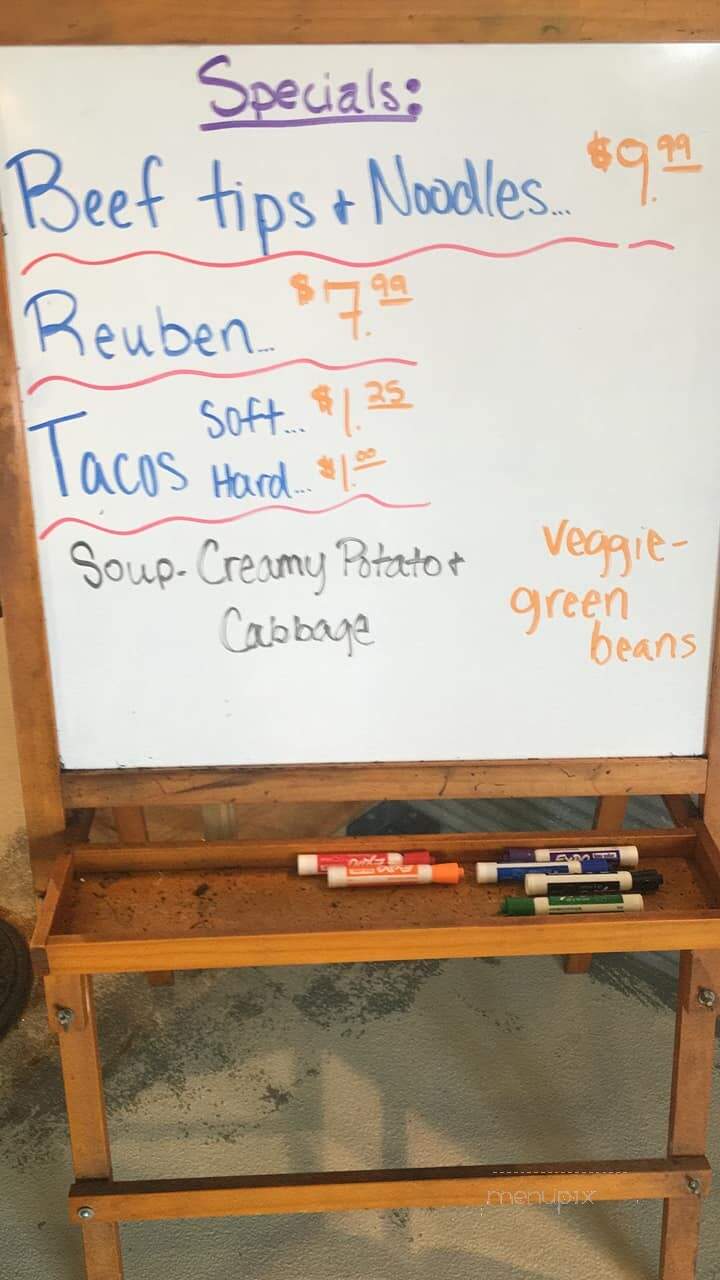 Specials:
Beef tips + Noodles... $9.99
Reuben... $7.99
Tacos Soft... $1.25
Hard... $1.00
Soup- Creamy Potato +
Cabbage
Veggie-
green
beans
EXPO
EXPO
EXPO
menupix